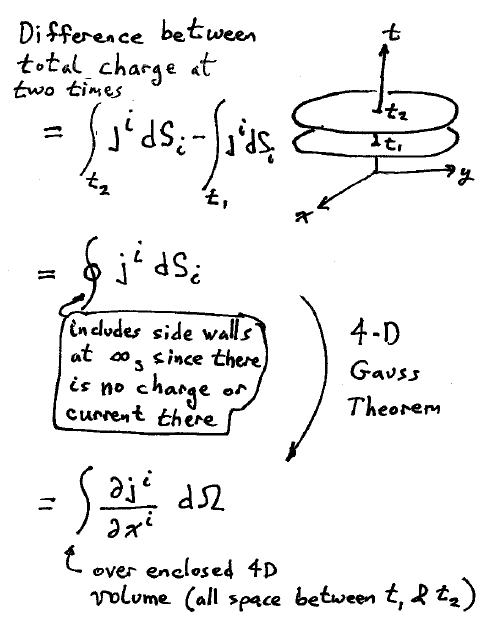 Difference between
total charge at
two times
t
= ∫_{t₂} j^i dS_i − ∫_{t₁} j^i dS_i
t₂
t₁
y
x
= ∮ j^i dS_i
includes side walls
at ∞, since there
is no charge or
current there
4-D
Gauss
Theorem
= ∫ ∂j^i/∂x^i dΩ
over enclosed 4D
volume (all space between t₁ & t₂)